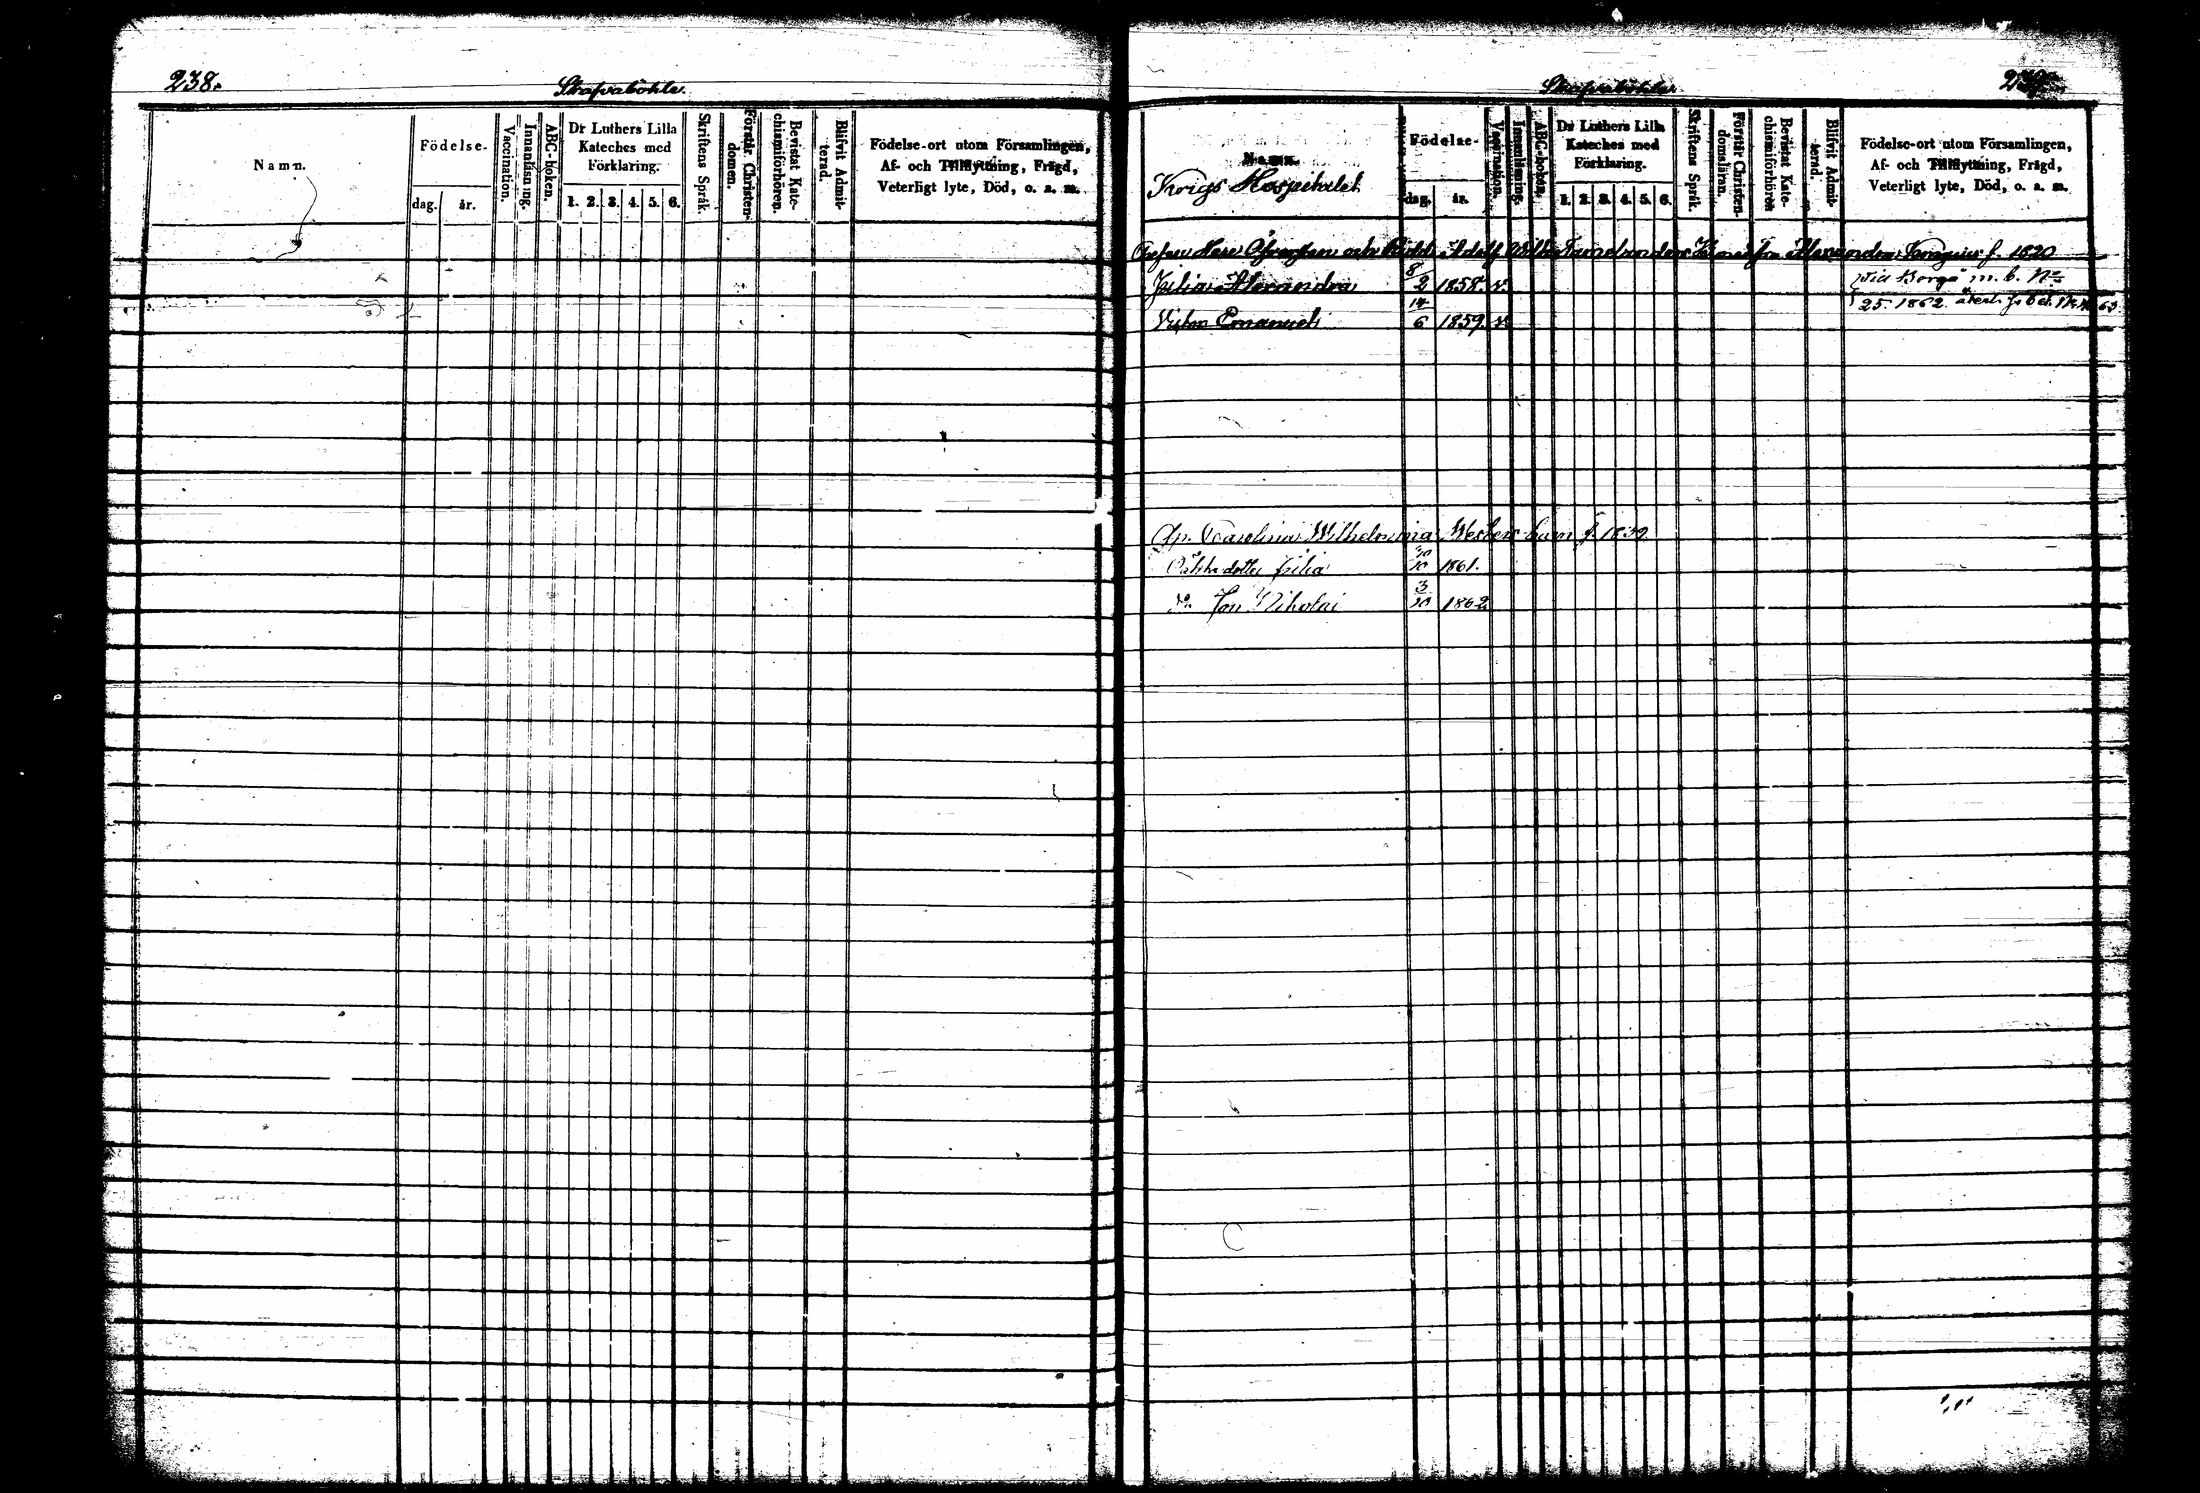 238.
Skafvaböhle.
Namn.
Födelse-
dag.
år.
Vaccination.
Innanläsning.
ABC-boken.
Dr Luthers Lilla
Kateches med
Förklaring.
1. 2. 3. 4. 5. 6.
Skriftens Språk.
Förstår Christen-
domen.
Bevistat Kate-
chismiförhören.
Blifvit Admit-
terad.
Födelse-ort utom Församlingen,
Af- och Tillflyttning, Frägd,
Veterligt lyte, Död, o. a. m.
Skafvaböhle.
239.
Namn.
Krigs Hospitalet
Födelse-
dag.
år.
Vaccination.
Innanläsning.
ABC-boken.
Dr Luthers Lilla
Kateches med
Förklaring.
1. 2. 3. 4. 5. 6.
Skriftens Språk.
Förstår Christen-
domsläran.
Bevistat Kate-
chismiförhören
Blifvit Admit-
terad.
Födelse-ort utom Församlingen,
Af- och Tillflyttning, Frägd,
Veterligt lyte, Död, o. a. m.
och Ridd. Adolf Wilh. Alexandra f. 1820
Julia Alexandra 8/2 1858. v.
till Borgå m. b. No
25. 1862.
Victor Emanuel 14/6 1859. v.
Carolina Wilhelmina f. 1839
Oäkta dotter Julia 30/10 1861.
Do Son Nikolai 3/10 1862